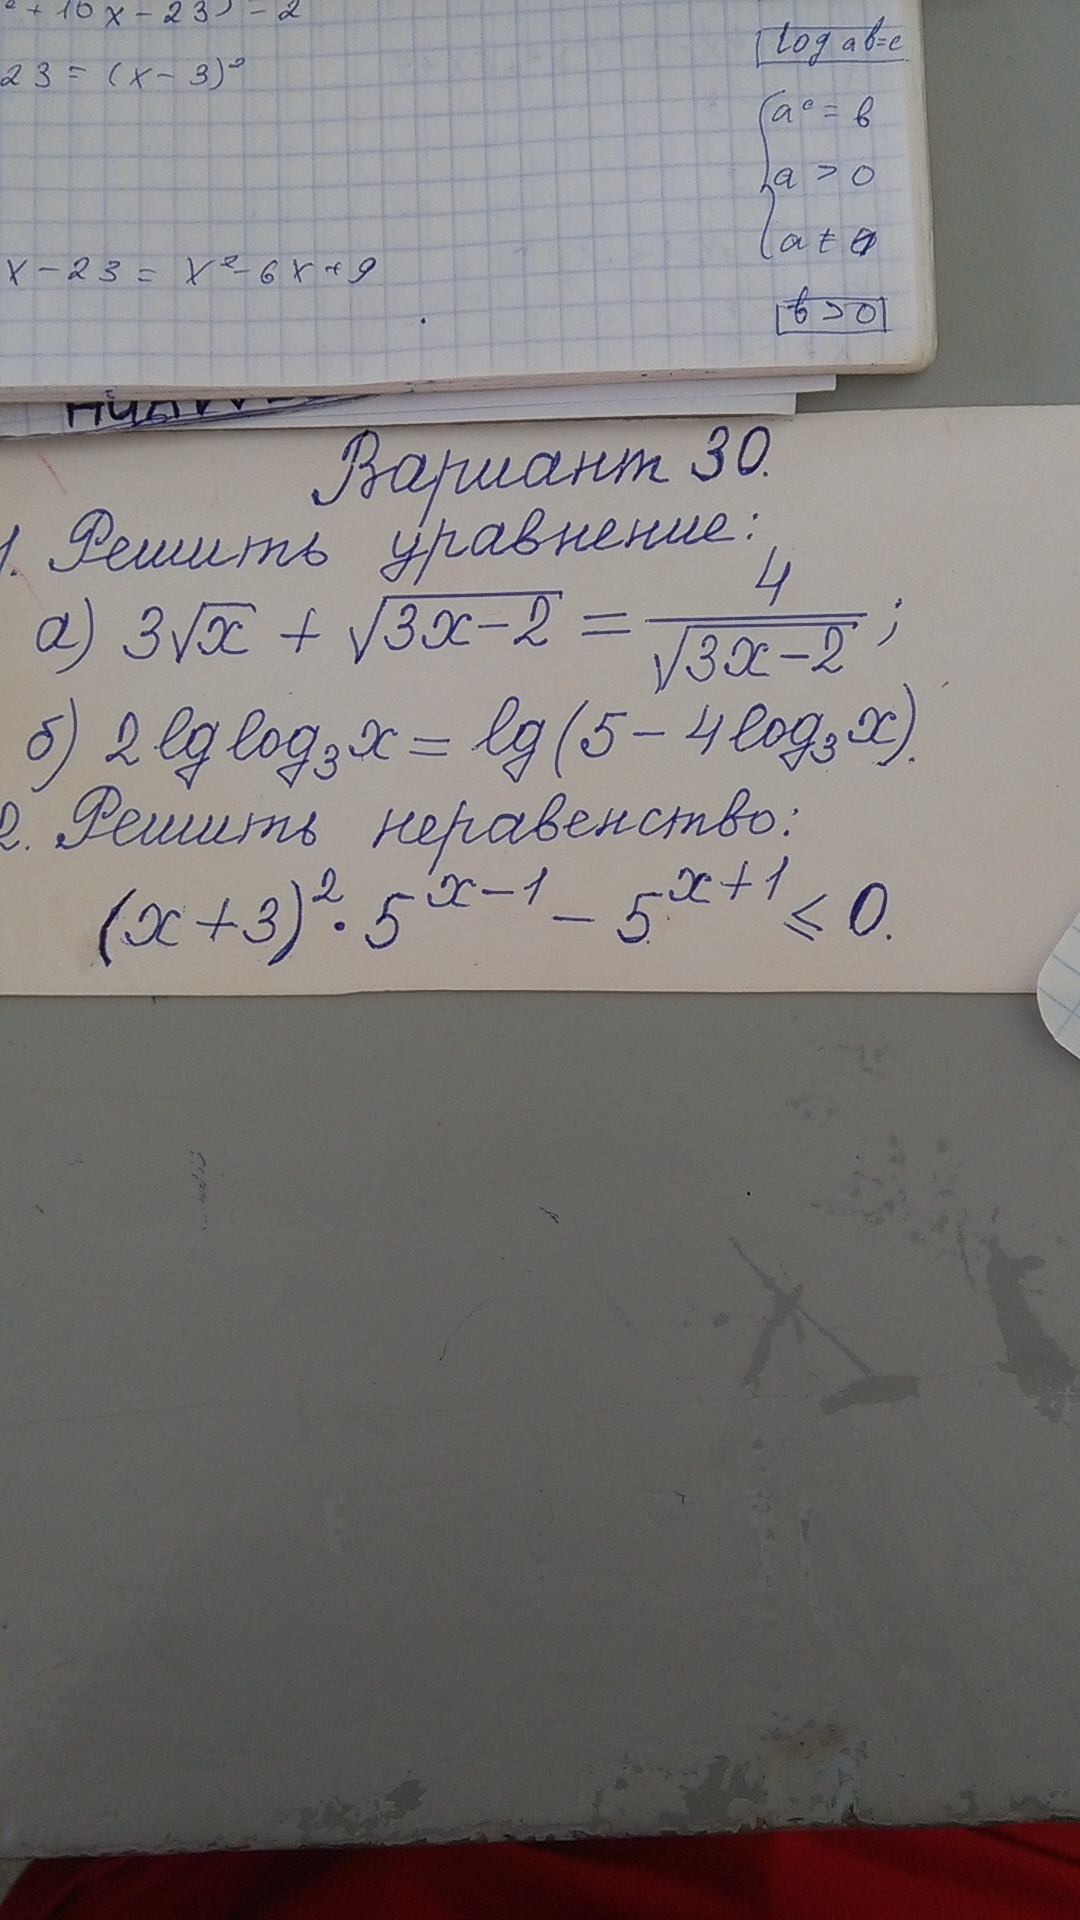 ² + 10x - 23) = 2
23 = (x - 3)²
x - 23 = x² - 6x + 9
log a b = c
a^c = b
a > 0
a ≠
b > 0
Вариант 30.
1. Решить уравнение:
а) 3√x + √(3x-2) = 4/√(3x-2);
б) 2 lg log₃ x = lg(5 - 4 log₃ x).
2. Решить неравенство:
(x+3)² · 5^(x-1) - 5^(x+1) ≤ 0.